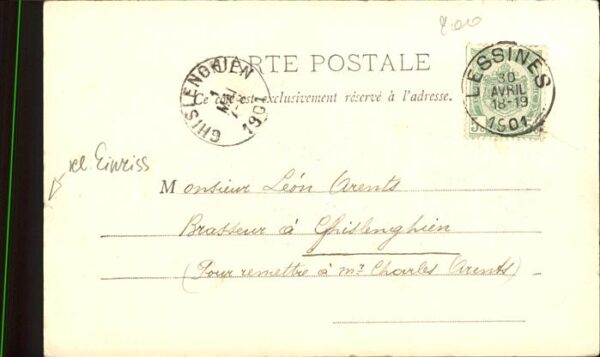 2,00
CARTE POSTALE
Ce côté est exclusivement réservé à l'adresse.
GHISLENGHIEN
1
MAI
1901
LESSINES
30
AVRIL
18-19
1901
kl. Einriss
Monsieur Léon Arents
Brasseur à Ghislenghien
(Pour remettre à mr Charles Arents)